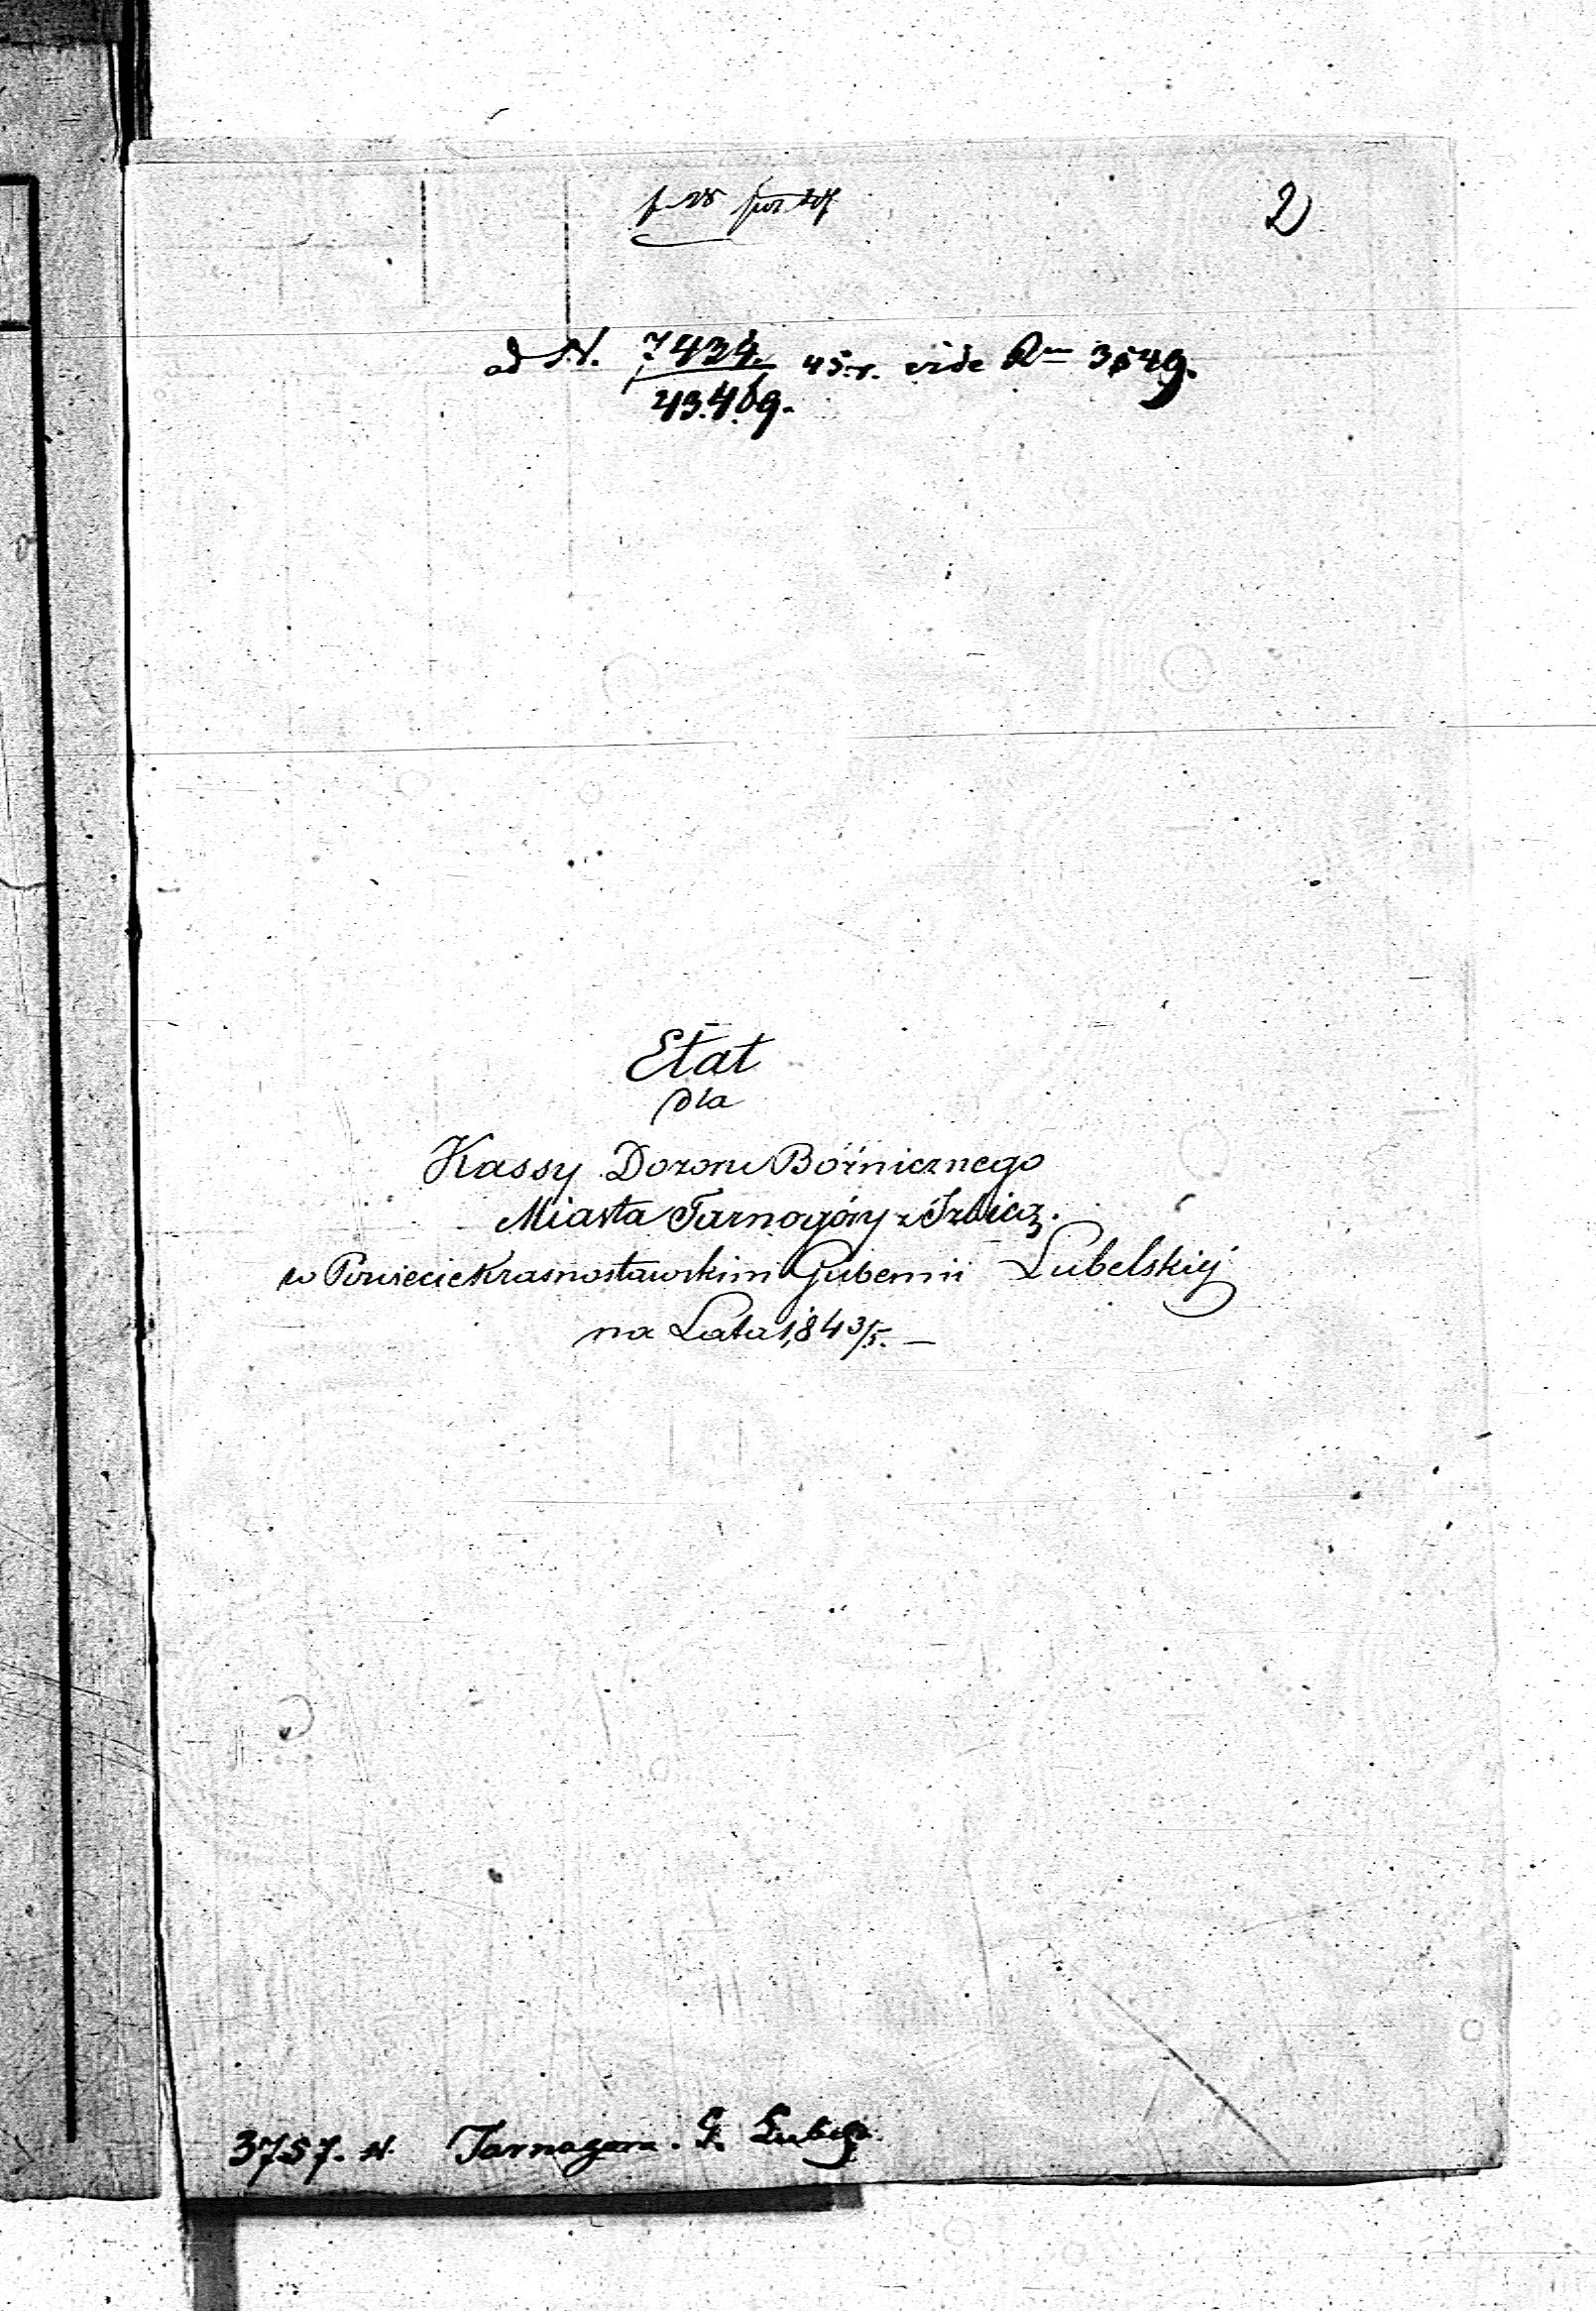 2
ad N. 7434. 45.r. vide 3549.
43.469.
Etat
dla
Kassy Dozoru Bóźnicznego
Miasta Tarnogóry z Izbicą.
w Powiecie Krasnostawskim Gubernii Lubelskiéj
na Lata 1,843/5. —
3757. N. Tarnagora. G. Lubel.